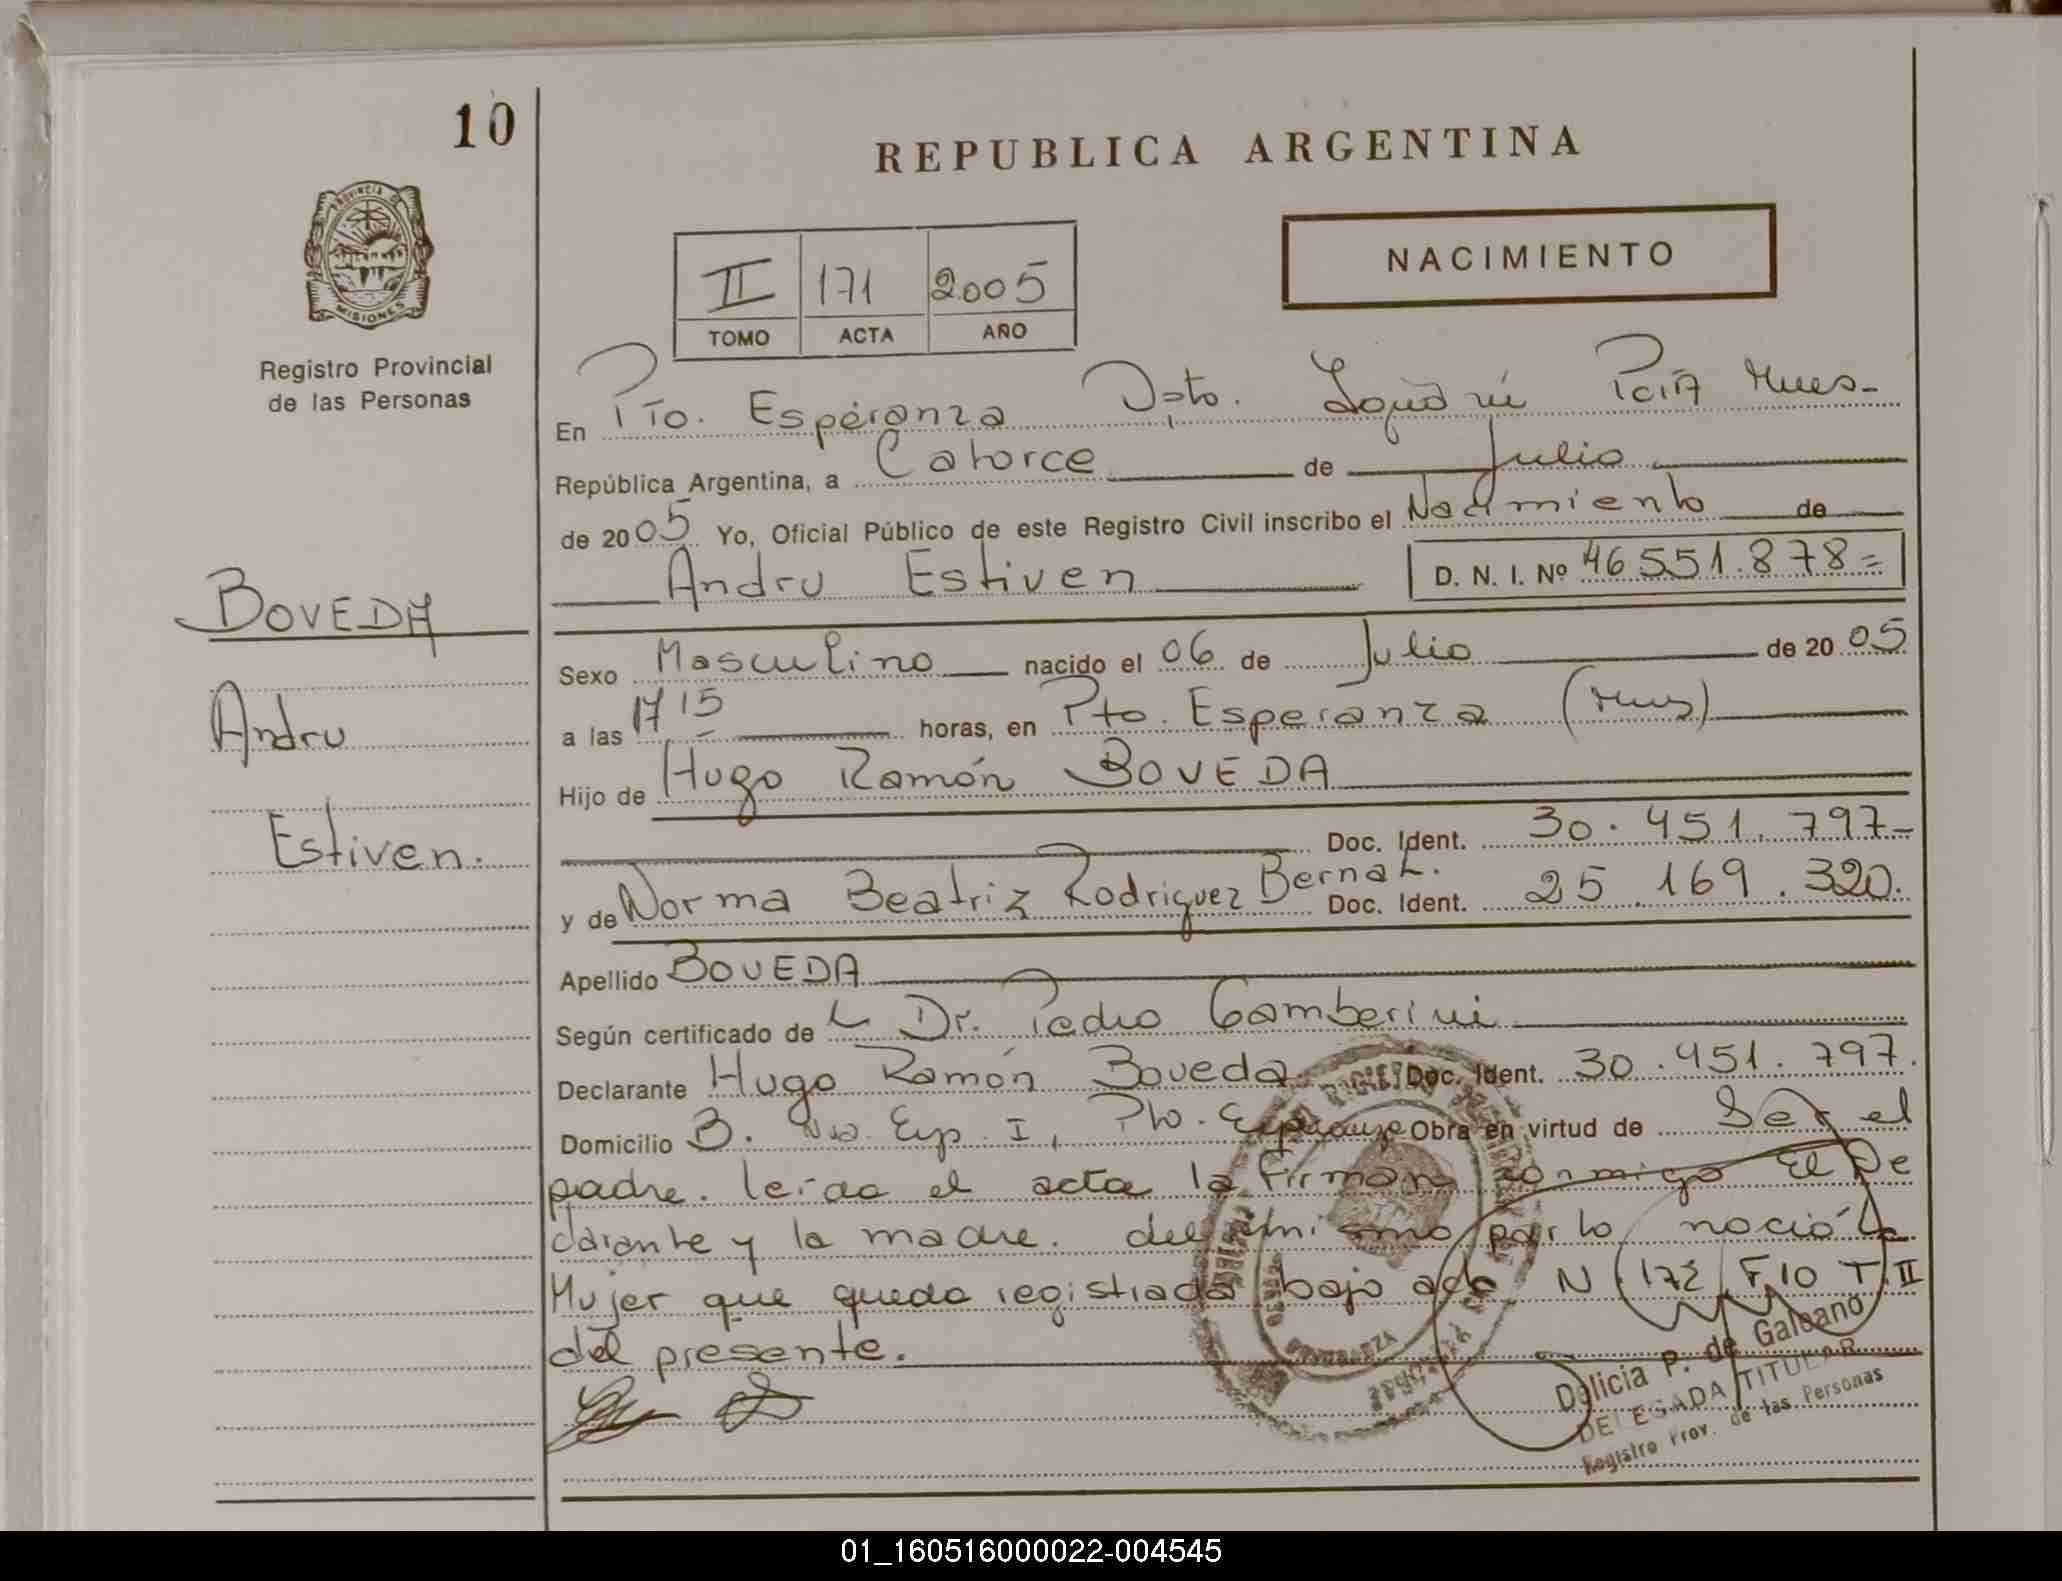 10
REPUBLICA ARGENTINA
PROVINCIA DE
MISIONES
Registro Provincial
de las Personas
NACIMIENTO
II 171 2005
TOMO ACTA AÑO
En Pto. Esperanza Dpto. Iguazú
República Argentina, a Catorce de Julio
de 2005 Yo, Oficial Público de este Registro Civil inscribo el Nacimiento de
Andru Estiven D. N. I. Nº 46551.878=
BOVEDA
Andru
Estiven.
Sexo Masculino nacido el 06 de Julio de 2005
a las 17 15 horas, en Pto. Esperanza (Mnes)
Hijo de Hugo Ramón BOVEDA
Doc. Ident. 30.451.797-
y de Norma Beatriz Rodriguez Bernal. Doc. Ident. 25.169.320.
Apellido BOVEDA
Según certificado de Dr. Pedro Gamberini
Declarante Hugo Ramón Boveda Doc. Ident. 30.451.797.
Domicilio B. Esp. I, Pto. Esperanza Obra en virtud de Ser el
padre. leida el acta la Firman conmigo El De
clarante y la madre. del mismo parto nació la
Mujer que queda registrada bajo acta N 172 F10 T.II
del presente.
Delicia P. de Galeano
DELEGADA TITULAR
Registro Prov. de las Personas
01_160516000022-004545